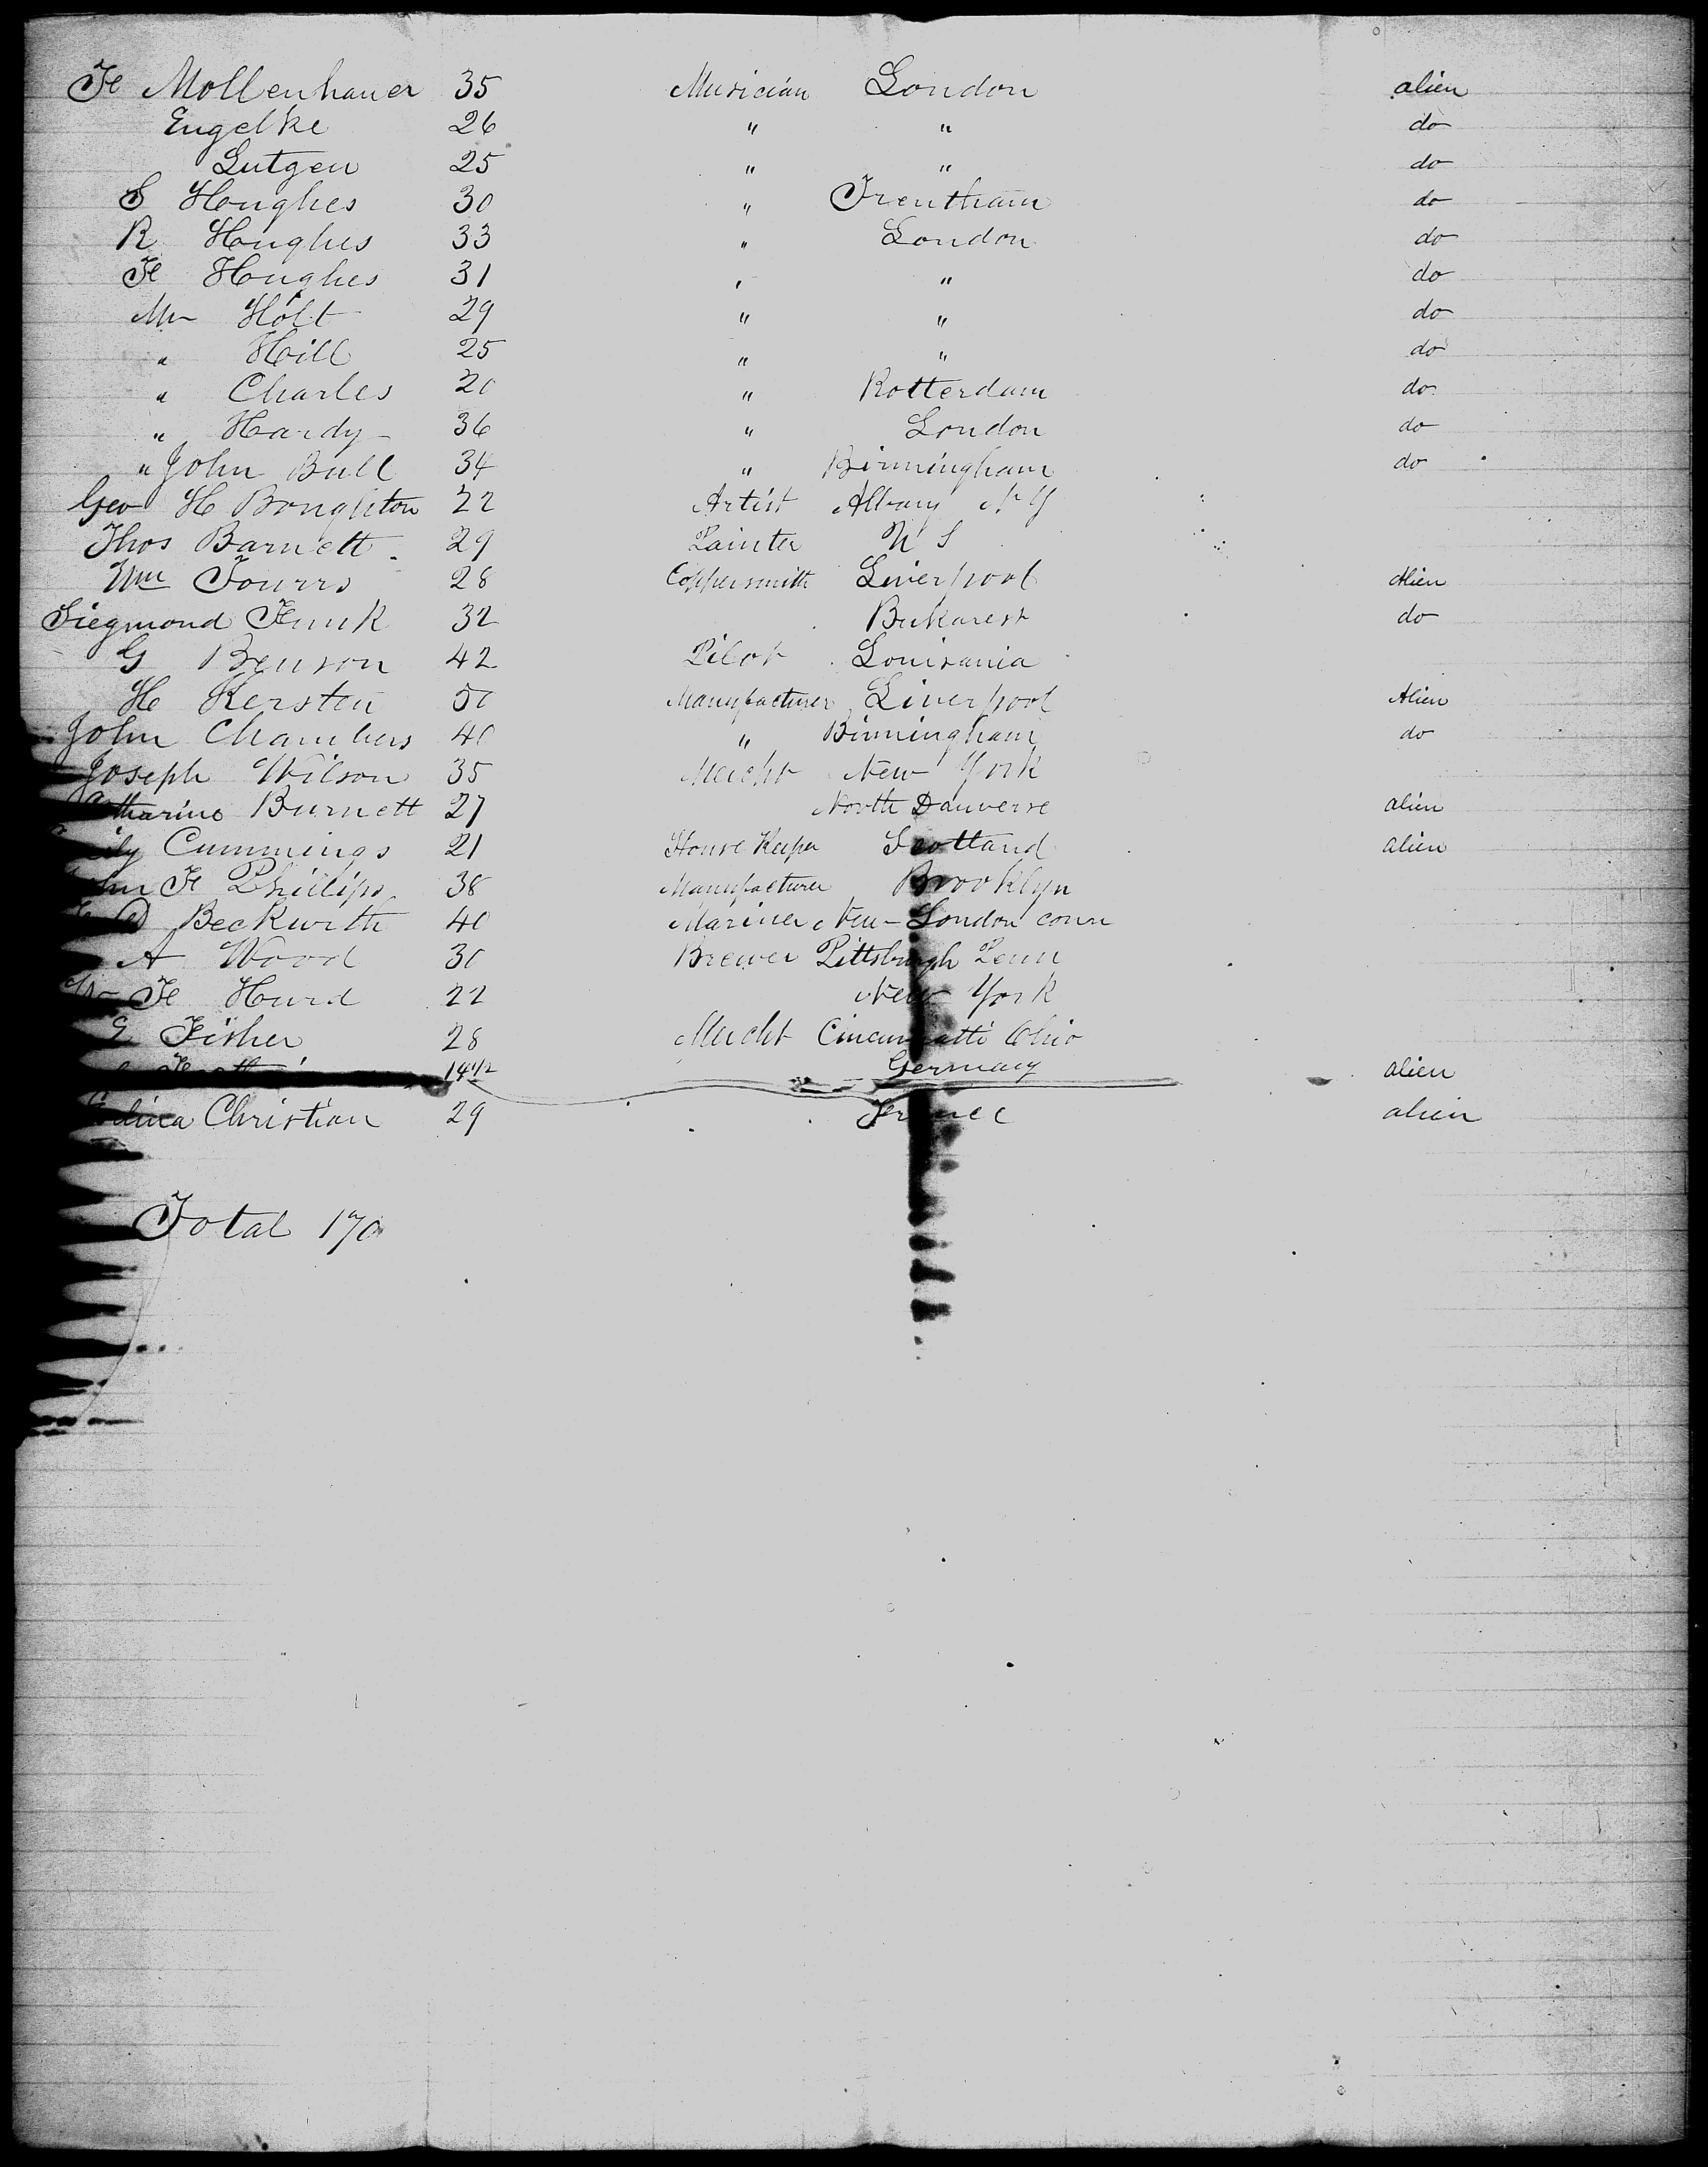 F Mollenhauer 35 Musician London alien
Engelke 26 " " do
Lutgen 25 " " do
S Houghes 30 " Trentham do
R Houghes 33 " London do
F Houghes 31 " " do
Mr Holt 29 " " do
" Hill 25 " " do
" Charles 20 " Rotterdam do
" Hardy 36 " London do
" John Bull 34 " Birmingham do
Geo H Boughton 22 Artist Albany N Y
Thos Barnett 29 Painter U S
Wm 28 Coppersmith Liverpool Alien
Siegmond Funk 32 Bukarest do
G Benson 42 Pilot Louisania
H Kersten 50 Manufacturer Liverpool Alien
John Chambers 40 " Birmingham do
Joseph Wilson 35 Mercht New York
Catharine Burnett 27 North Danverse alien
Cummings 21 House Keeper Scotland alien
John F Phillips 38 Manufacturer Brooklyn
D Beckwith 40 Mariner New London conn
A Wood 30 Brewer Pittsburgh Penn
F Hurd 22 New York
Fisher 28 Mercht Cincinnatti Ohio
14 1/2 Germany alien
Christian 29 France alien
Total 170